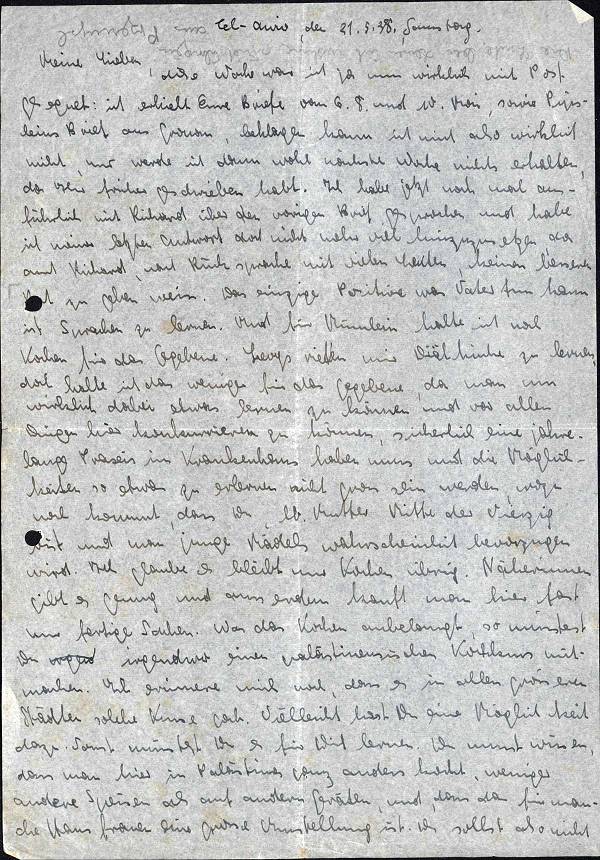 Tel-Aviv den 21.5.38, Samstag.
Meine Lieben, diese Woche war ich ja nun wirklich mit Post
gesegnet: ich erhielt Eure Briefe vom 6. 8. und 10. Mai, sowie
Brief aus, beklagen kann ich mich also wirklich
nicht, nur werde ich dann wohl nächste Woche nichts erhalten,
da Ihr früher geschrieben habt. Ich habe jetzt noch mal aus-
führlich mit Richard über den vorigen Brief gesprochen und habe
ich meiner letzten Antwort dort nicht mehr viel hinzuzusetzen da
auch Richard, nach Rücksprache mit vielen Leuten, keinen besseren
Rat zu geben weiss. Das einzige Positive was Vater tun kann
ist Sprachen zu lernen. Und für halte ich noch
Kochen für das Gegebene. Levys rieten mir Diätküche zu lernen,
doch halte ich das weniger für das gegebene, da man um
wirklich dabei etwas lernen zu können und vor allen
Dingen hier konkurrieren zu können, sicherlich eine jahre-
lange Praxis im Krankenhaus haben muss und die Möglich-
keiten so etwas zu erlernen nicht gross sein werden, wozu
noch kommt, dass Du, lb. Mutter Mitte der Vierzig
bist und man junge Mädels wahrscheinlich bevorzugen
wird. Ich glaube es bleibt nur Kochen übrig. Näherinnen
gibt es genug und ausserdem kauft man hier fast
nur fertige Sachen. Was das Kochen anbelangt, so müsstest
Du irgendwo einen palästinensischen Kochkurs mit-
machen. Ich erinnere mich noch, dass es in allen grösseren
Städten solche Kurse gab. Vielleicht hast Du eine Möglichkeit
dazu. Sonst müsstest Du es für Dich lernen. Du musst wissen,
dass man hier in Palästina ganz anders kocht, weniger
andere Speisen als auf andern Geräten, und dass das für man-
che Hausfrauen eine grosse Umstellung ist. Du sollst also nicht